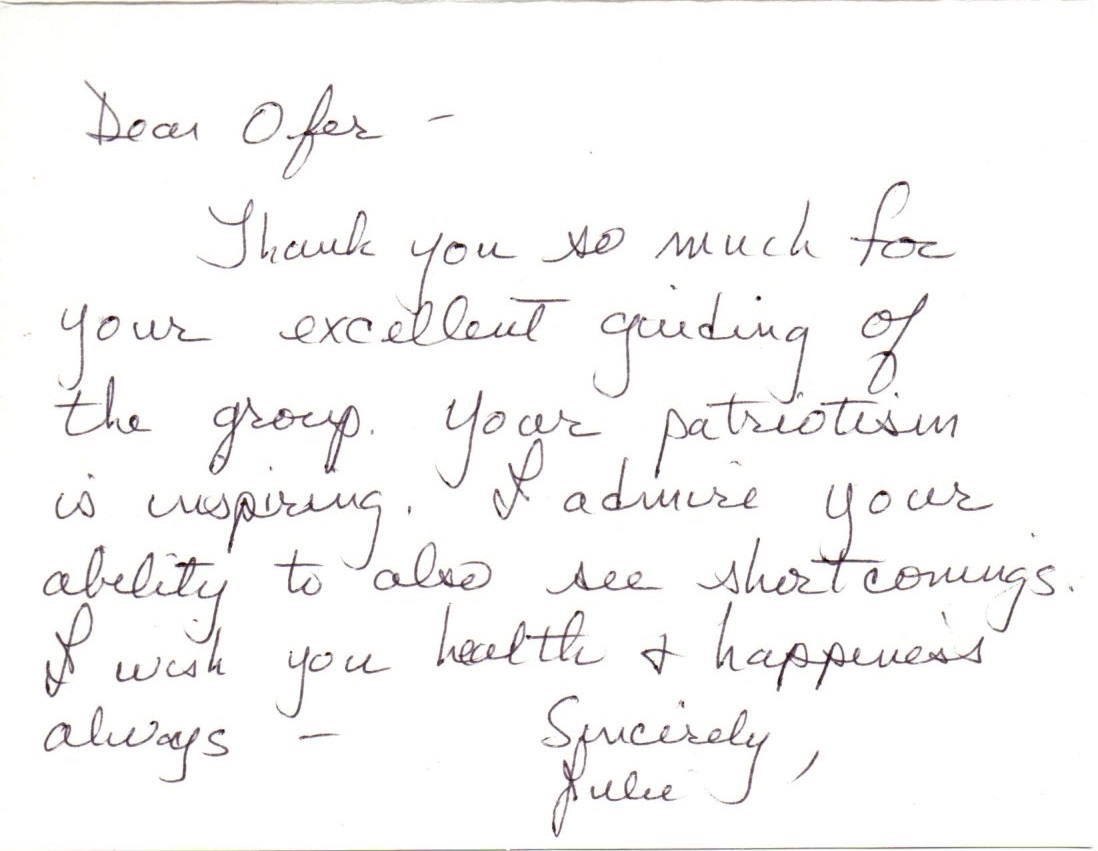 Dear Ofer -
Thank you so much for
your excellent guiding of
the group. Your patriotism
is inspiring. I admire your
ability to also see shortcomings.
I wish you health & happiness
always -
Sincerely,
Julie